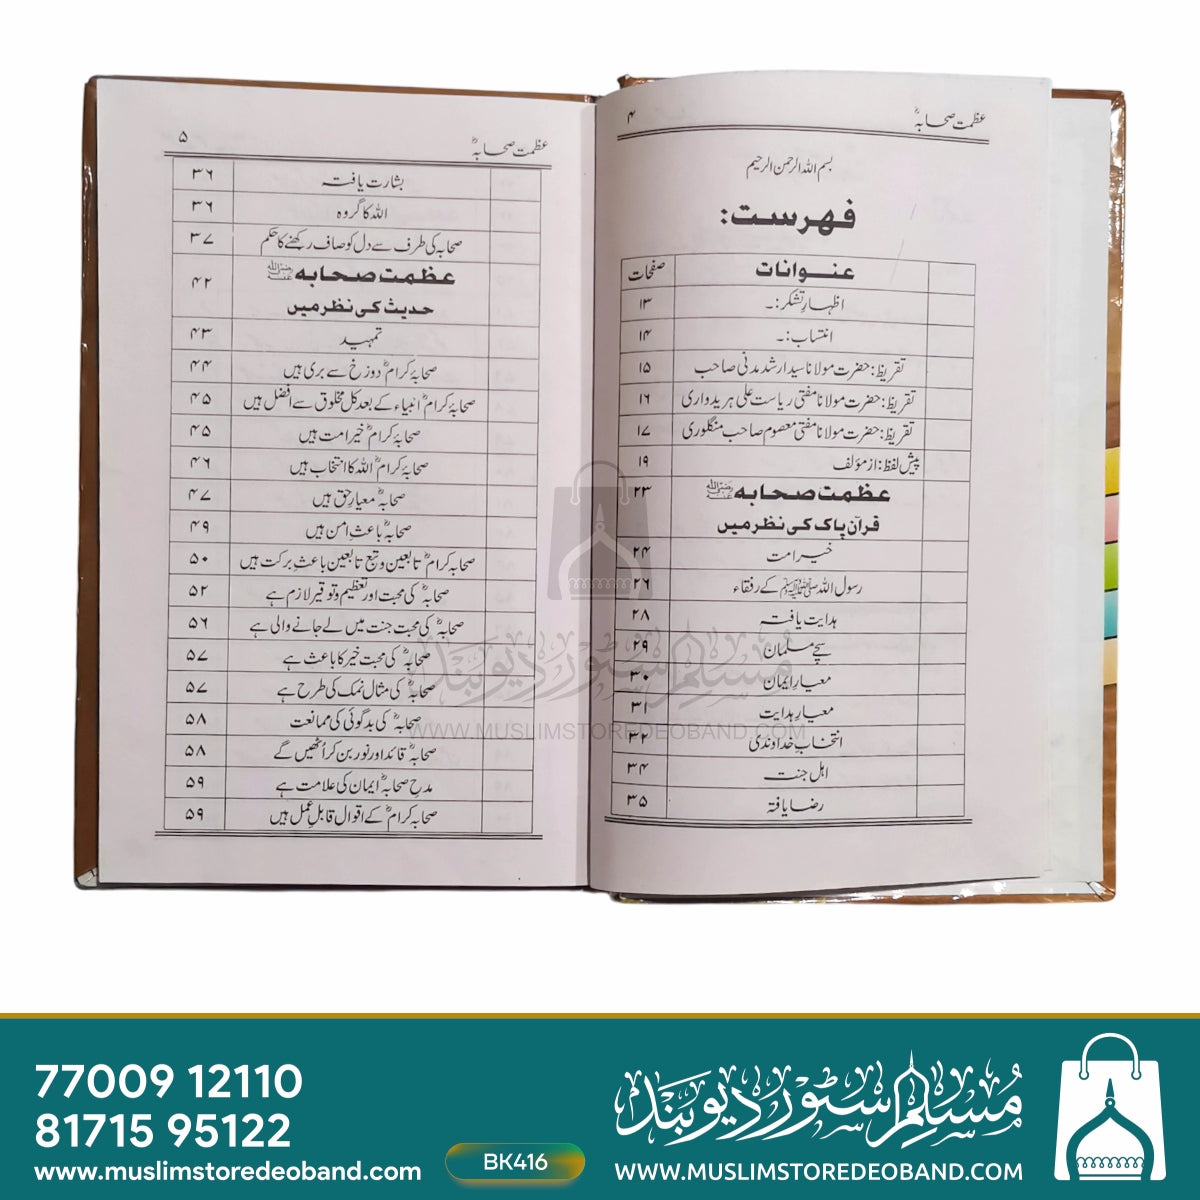 عظمت صحابہؓ ۴
بسم اللہ الرحمن الرحیم
فہرست:
عنوانات صفحات
اظہارِ تشکر:۔ ۱۳
انتساب:۔ ۱۴
تقریظ: حضرت مولانا سید ارشد مدنی صاحب ۱۵
تقریظ: حضرت مولانا مفتی ریاست علی ہریدواری ۱۶
تقریظ: حضرت مولانا مفتی معصوم صاحب منگلوری ۱۷
پیش لفظ: از مؤلف ۱۹
عظمت صحابہ رضی اللہ عنہ ۲۳
قرآن پاک کی نظر میں
خیر امت ۲۴
رسول اللہ ﷺ کے رفقاء ۲۶
ہدایت یافتہ ۲۸
سچے مسلمان ۲۹
معیارِ ایمان ۳۰
معیارِ ہدایت ۳۱
انتخابِ خداوندی ۳۲
اہل جنت ۳۴
رضا یافتہ ۳۵
عظمت صحابہؓ ۵
بشارت یافتہ ۳۶
اللہ کا گروہ ۳۶
صحابہ کی طرف سے دل کو صاف رکھنے کا حکم ۳۷
عظمت صحابہ رضی اللہ عنہ ۴۲
حدیث کی نظر میں
تمہید ۴۳
صحابہ کرامؓ دوزخ سے بری ہیں ۴۴
صحابۂ کرامؓ انبیاء کے بعد کل مخلوق سے افضل ہیں ۴۵
صحابۂ کرامؓ خیر امت ہیں ۴۵
صحابۂ کرامؓ اللہ کا انتخاب ہیں ۴۶
صحابہؓ معیارِ حق ہیں ۴۷
صحابہؓ باعثِ امن ہیں ۴۹
صحابہ کرامؓ تابعین و تبع تابعین باعثِ برکت ہیں ۵۰
صحابہؓ کی محبت اور تعظیم و توقیر لازم ہے ۵۲
صحابہؓ کی محبت جنت میں لے جانے والی ہے ۵۶
صحابہؓ کی محبت خیر کا باعث ہے ۵۷
صحابہؓ کی مثال نمک کی طرح ہے ۵۷
صحابہؓ کی بدگوئی کی ممانعت ۵۸
صحابہؓ قائد اور نور بن کر اٹھیں گے ۵۸
مدحِ صحابہؓ ایمان کی علامت ہے ۵۹
صحابہ کرامؓ کے اقوال قابلِ عمل ہیں ۵۹
مسلم سٹور دیوبند
WWW.MUSLIMSTOREDEOBAND.COM
77009 12110
81715 95122
www.muslimstoredeoband.com
BK416
مسلم سٹور دیوبند
WWW.MUSLIMSTOREDEOBAND.COM